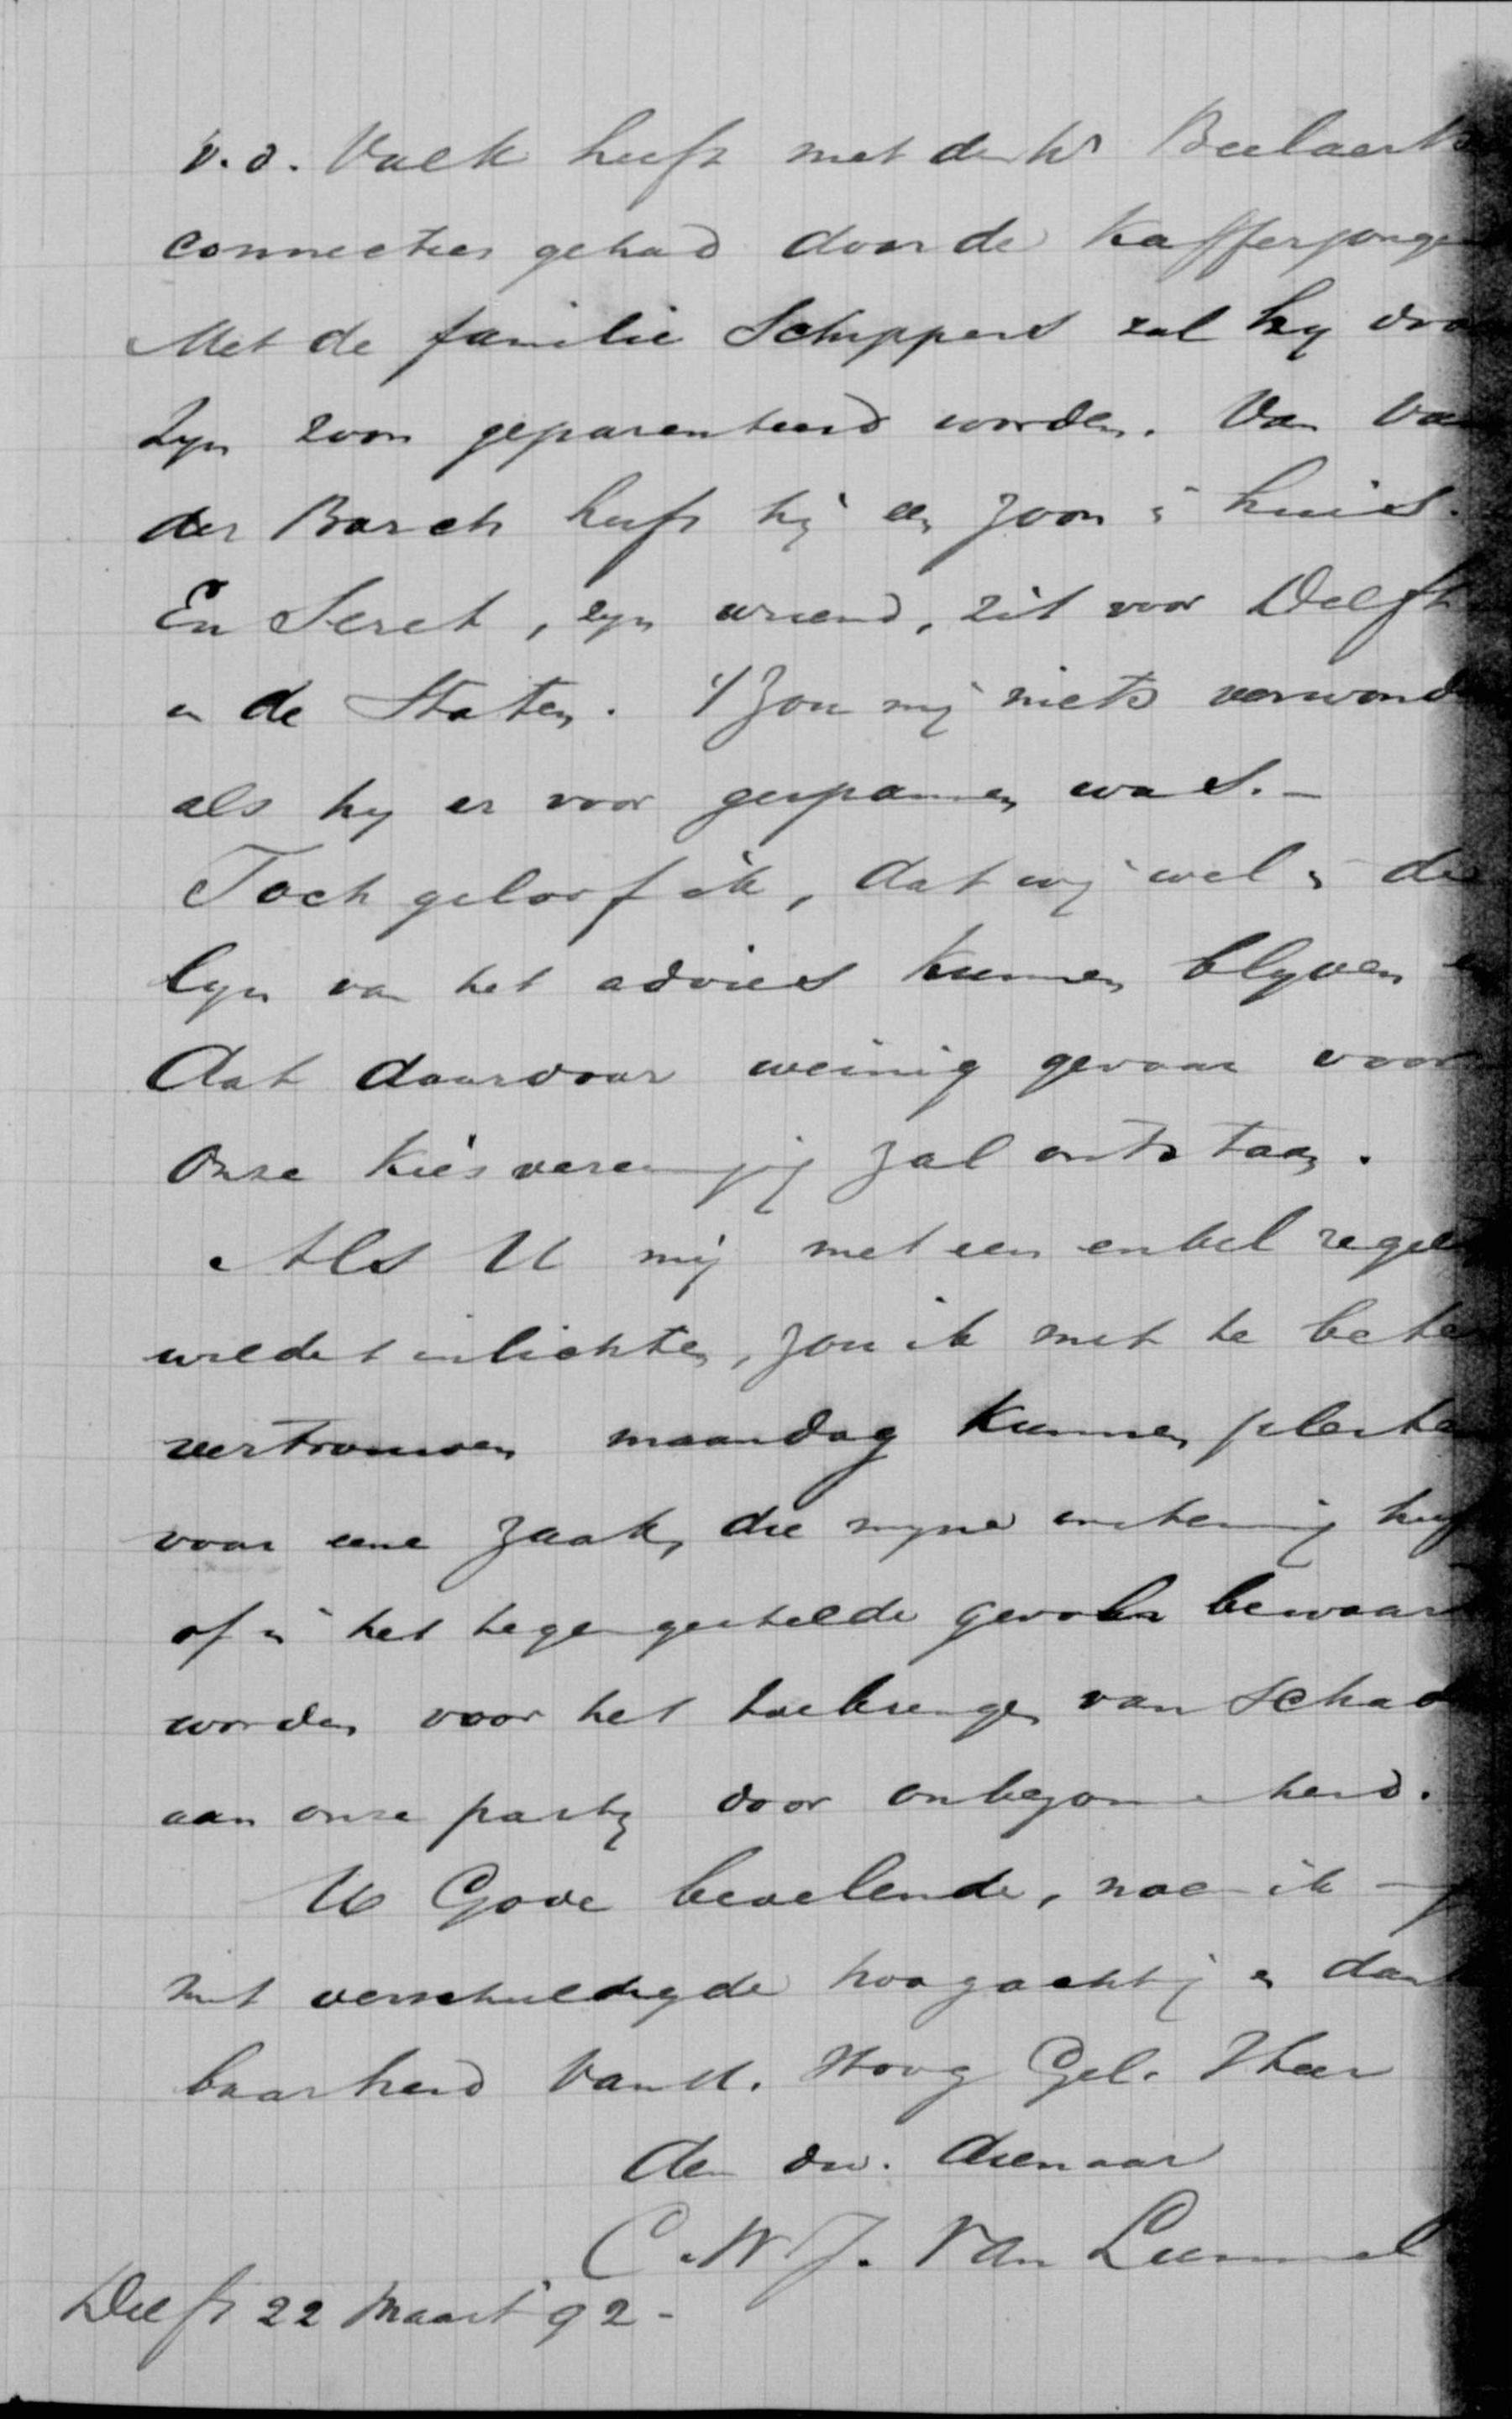 v.d. Valk heeft met den hr Beelaerts
connecties gehad door de Kafferjongen
Met de familie Schippers zal hy door
zyn zoon geparenteerd worden. Van Van
der Borch heeft hij een zoon in huis.
En Seret, zyn vriend, zit voor Delft
in de Staten. 't Zou mij niets verwond
als hy er voor gespannen was. -
Toch geloof ik, dat wij wel in de
lyn van het advies kunnen blyven en
dat daardoor weinig gevaar voor
onze Kiesvereenig zal ontstaan.
Als U mij met een enkel regel
wildet inlichten, zou ik met te beter
vertrouwen maandag kunnen pleiten
voor eene zaak, die myne instemmig heef
of in het tegengestelde geval bewaard
worden voor het toebrengen van schade
aan onze party door onbegonnenheid.
U Gode bevelende, noem ik mij
met verschuldigde hoogachtig en dank
baarheid van U. Hoog Gel. Heer
den dw. dienaar
C. W. J. Van Lummel
Delft 22 Maart 92 -